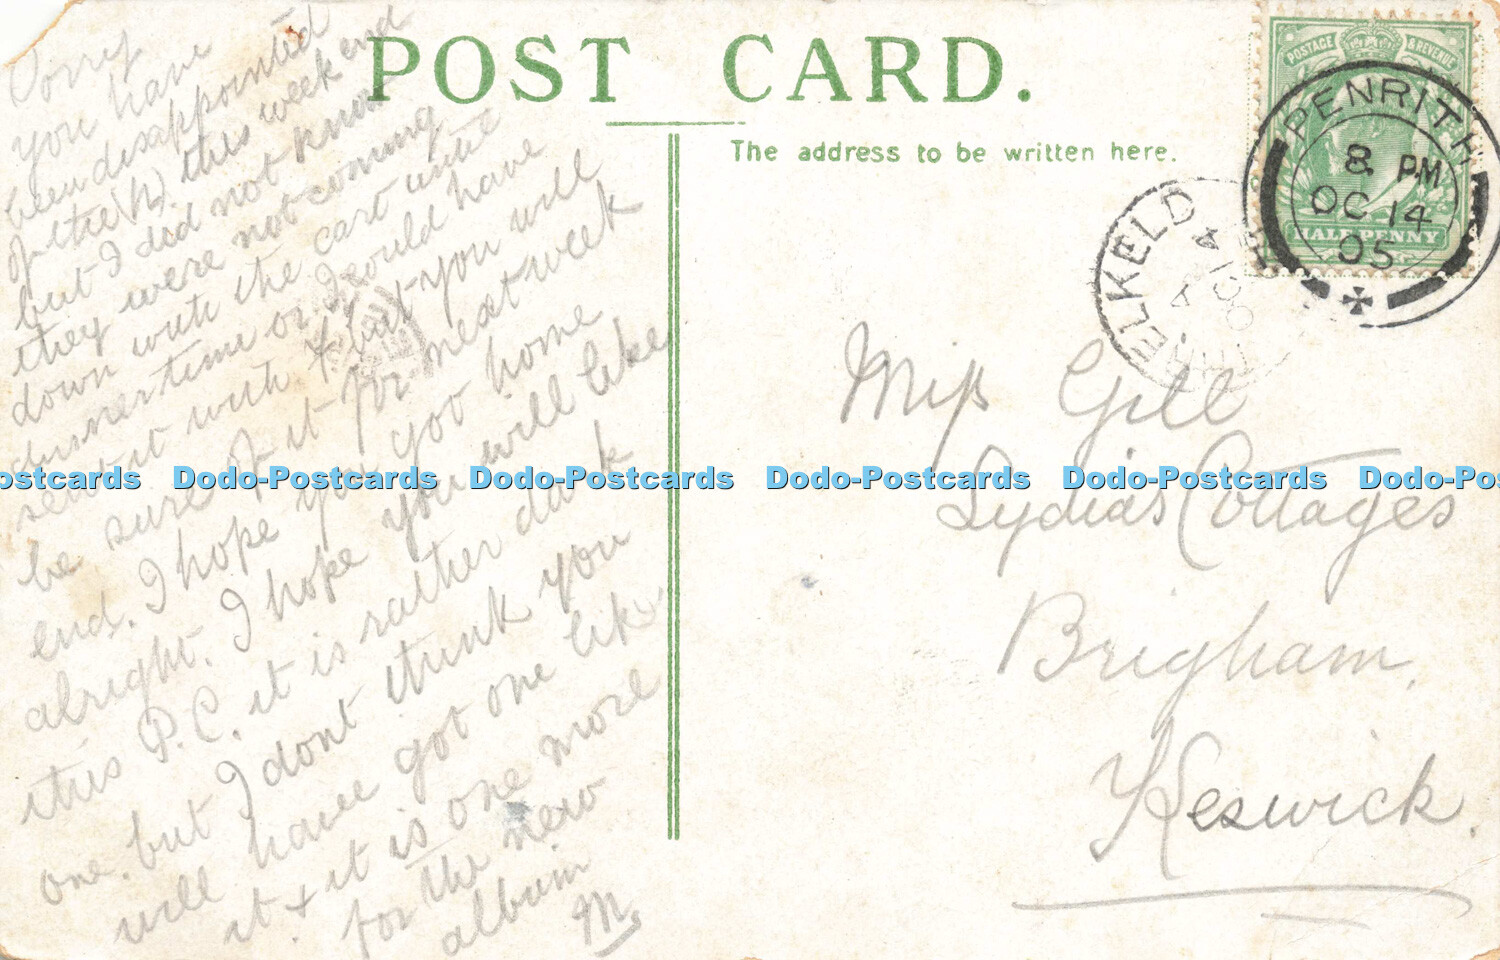 POST CARD.
The address to be written here.
POSTAGE & REVENUE
HALFPENNY
PENRITH
8 PM
OC 14
05
THRELKELD
OC 14
Sorry
you have
been disappointed
of the W. this week end
but I did not know
they were not coming
down with the cart until
dinnertime or I would have
sent it with but you will
be sure of it for next week
end. I hope you got home
alright. I hope you will like
this P.C. it is rather dark
one. but I dont think you
will have got one like
it + it is one more
for the new
album
M.
Miss Gill
Lydia's Cottages
Brigham,
Keswick.
Dodo-Postcards Dodo-Postcards Dodo-Postcards Dodo-Postcards